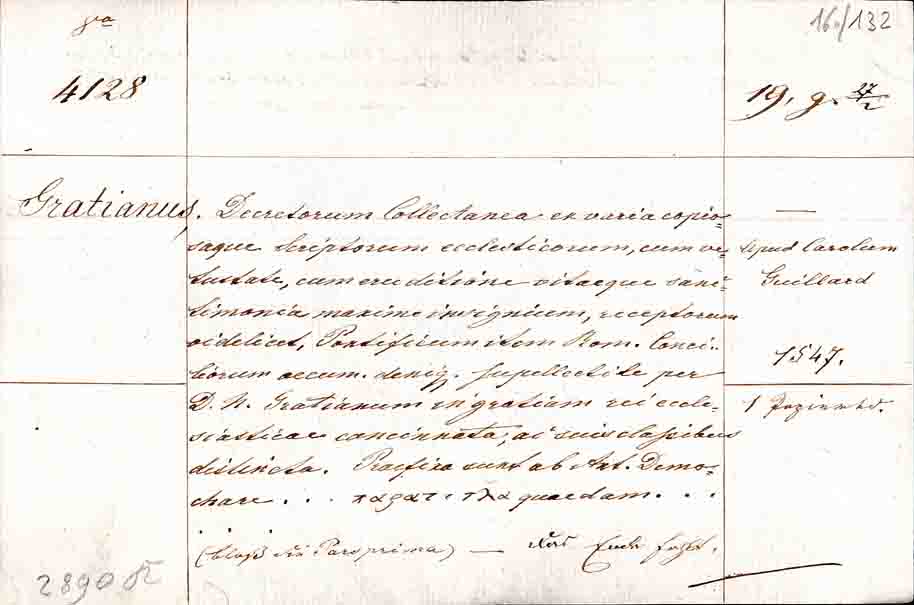 16./132
4128
19. g. 27/2
Gratianus, Decretorum Collectanea ex varia copio-
saque Scriptorum ecclesticorum, cum ve-
tustate, cum eruditione vitaeque sanc-
timonia maxime insignium, receptorum
videlicet, Pontificum item Rom. Conci-
liorum oecum. deniq. supellectile per
D. N. Gratianum in gratiam rei eccle-
siasticae concinnata, ac suis classibus
distincta. Praefixa sunt ab Ant. Demo-
chare . . . παρατιτλα quaedam . . .
. .
(bloß die Pars prima) — das Ende fehlt.
—
Apud Carolam
Guillard
1547.
1
2890